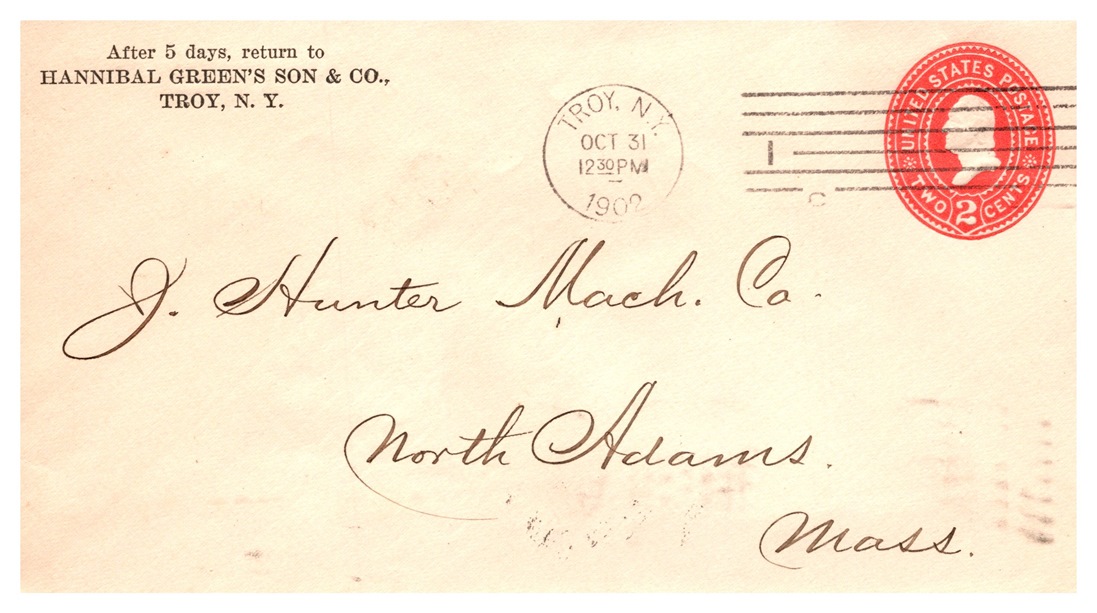 After 5 days, return to
HANNIBAL GREEN'S SON & CO.,
TROY, N. Y.
TROY, N.Y.
OCT 31
12 30 PM
1902
1
C
UNITED STATES POSTAGE
TWO 2 CENTS
J. Hunter Mach. Co.
North Adams.
Mass.